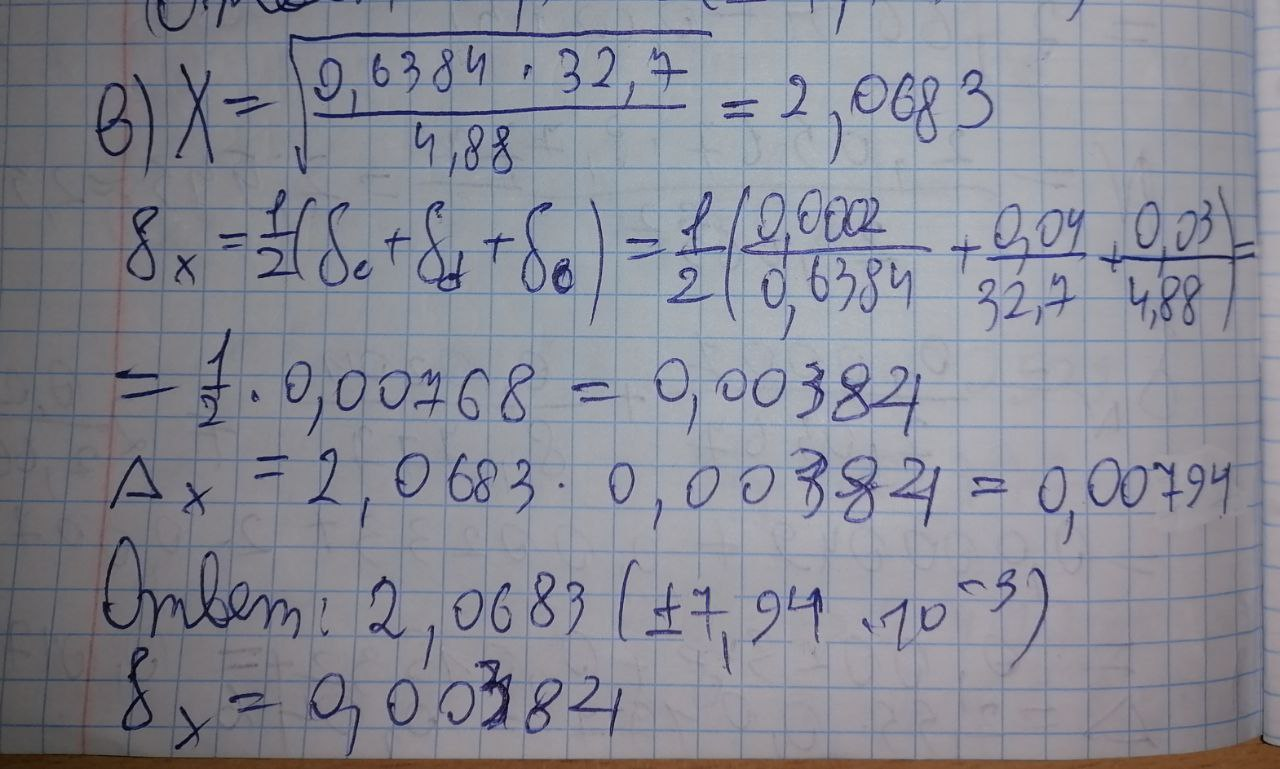 в) X = √(0,6384 · 32,7 / 4,88) = 2,0683
δx = 1/2 (δc + δd + δв) = 1/2 (0,0002/0,6384 + 0,04/32,7 + 0,03/4,88) =
= 1/2 · 0,00768 = 0,00384
Δx = 2,0683 · 0,00384 = 0,00794
Ответ: 2,0683 (±7,94 · 10⁻³)
δx = 0,00384